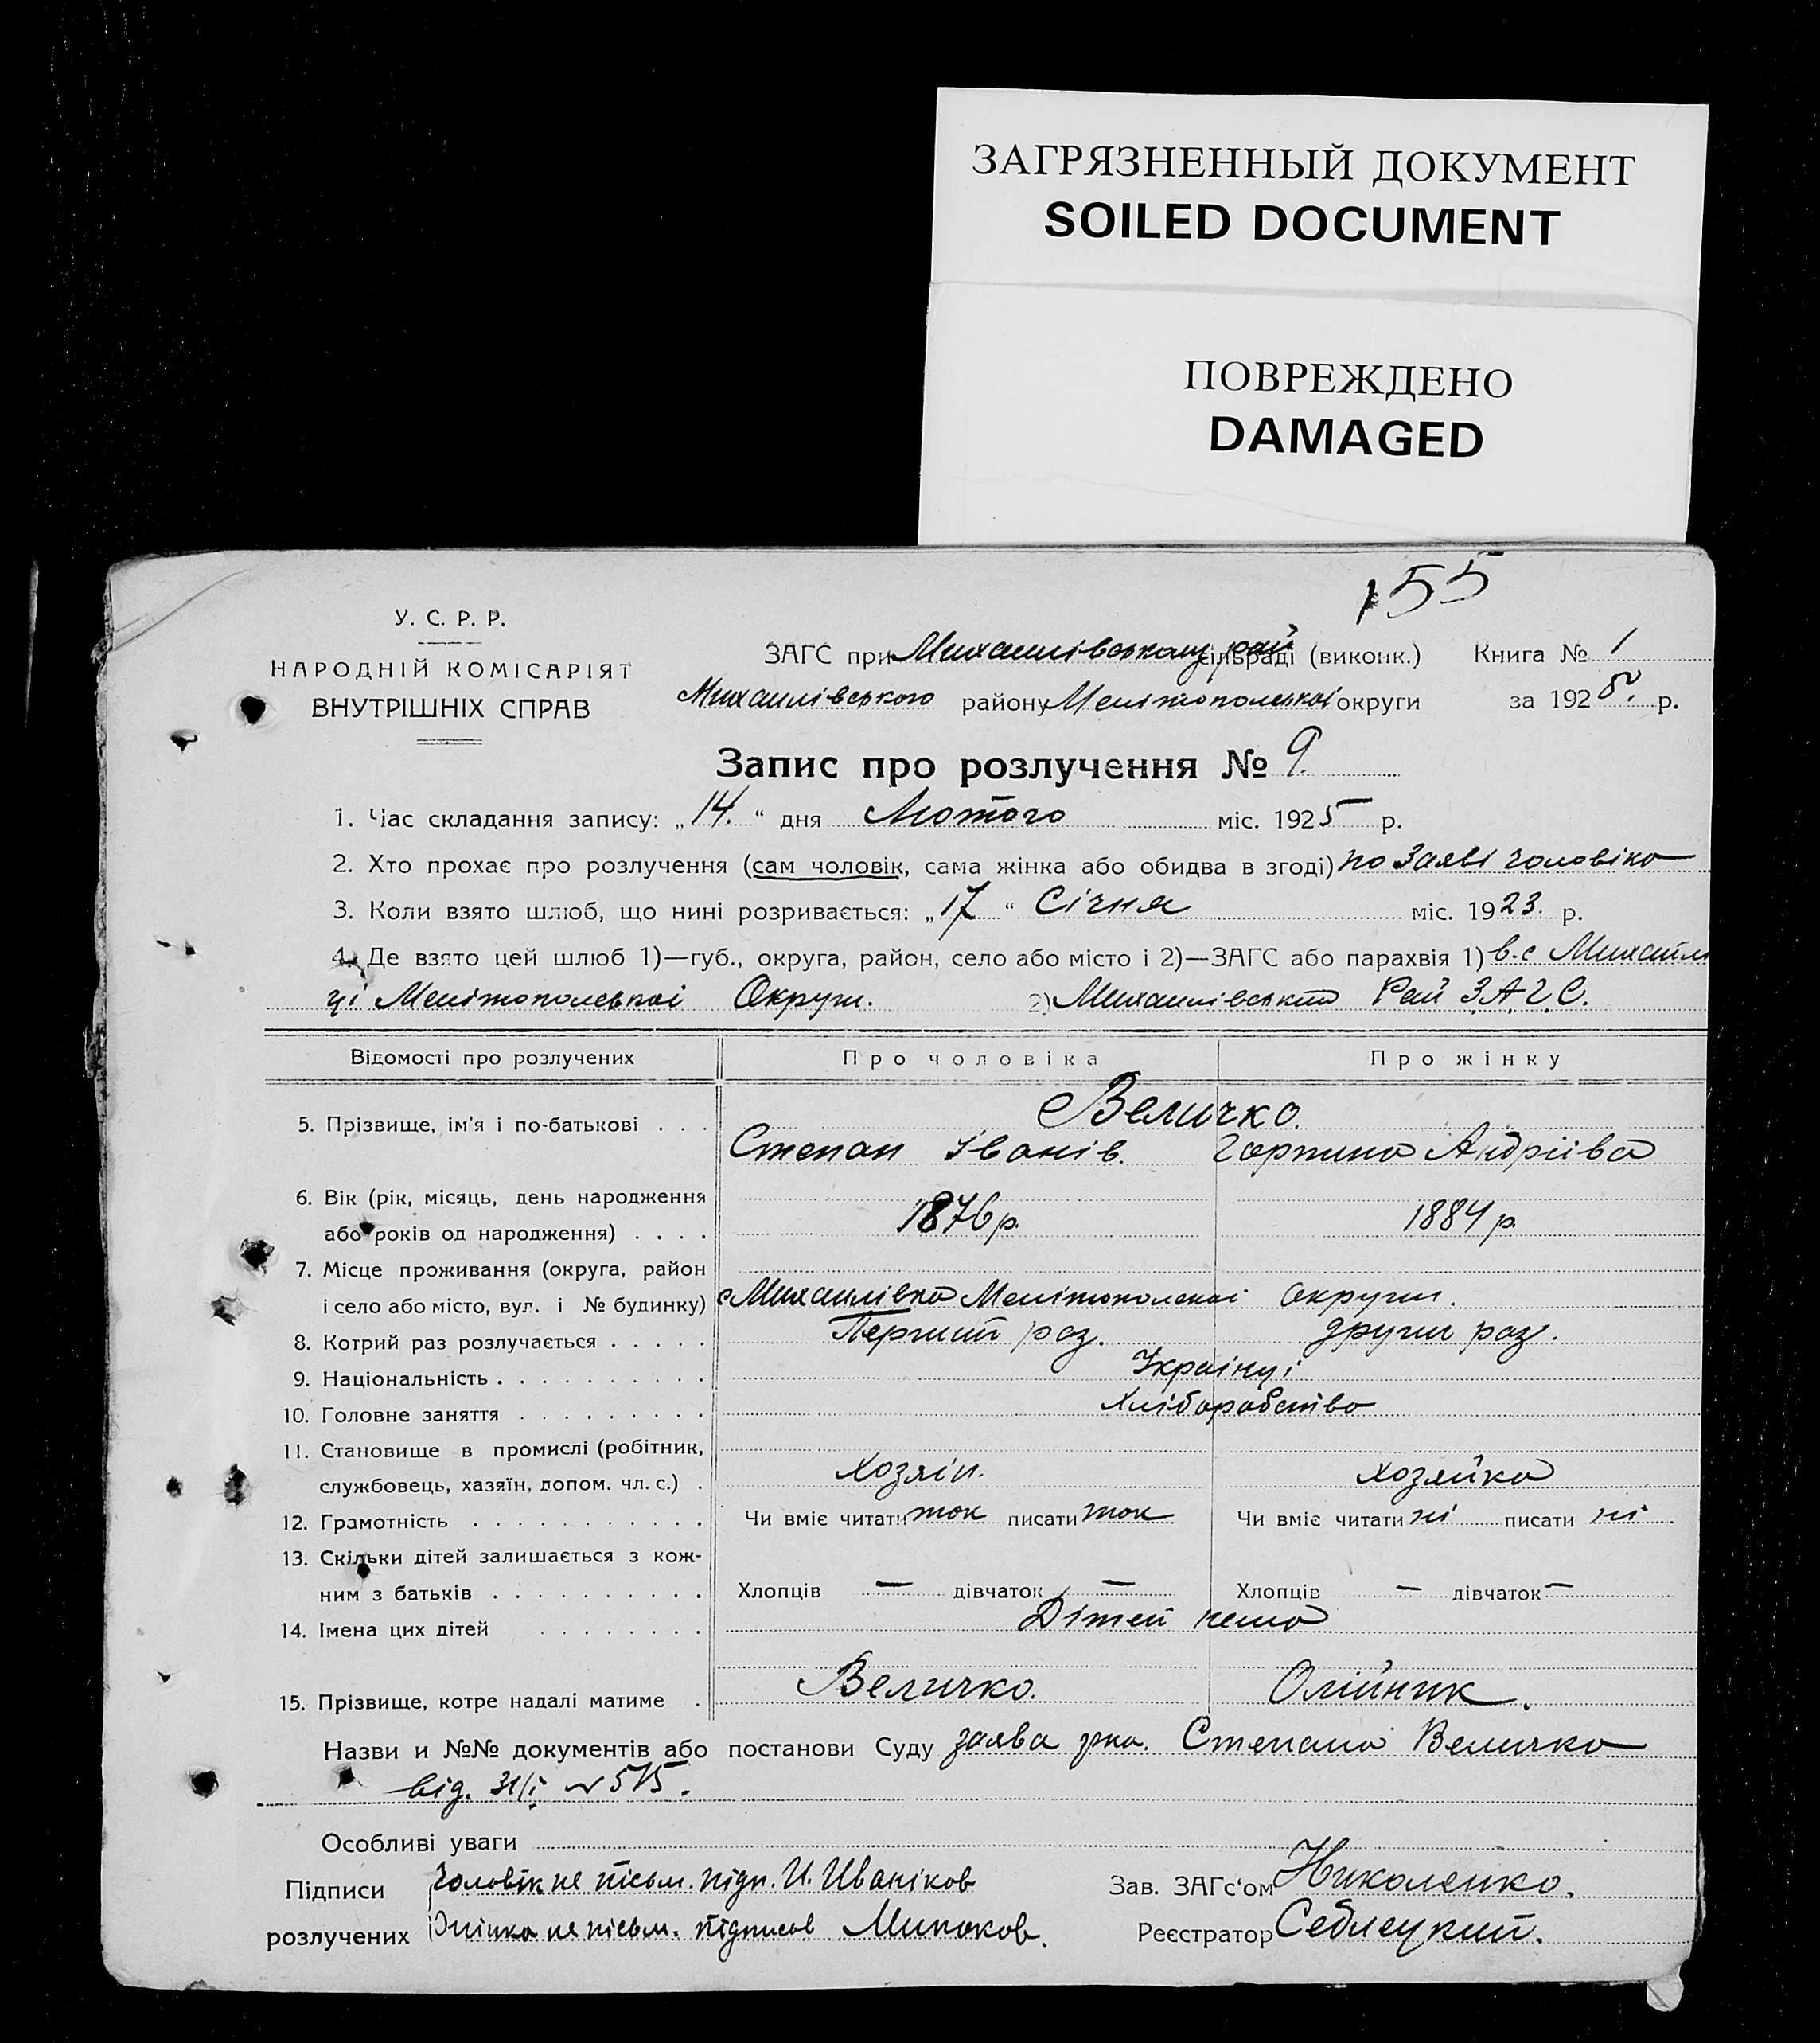 ЗАГРЯЗНЕННЫЙ ДОКУМЕНТ
SOILED DOCUMENT
ПОВРЕЖДЕНО
DAMAGED
155
У. С. Р. Р.
НАРОДНІЙ КОМІСАРІЯТ
ВНУТРІШНІХ СПРАВ
ЗАГС при Михайлівському рай сільраді (виконк.) Книга № 1
Михайлівського району Мелітопольської округи за 1925 р.
Запис про розлучення № 9.
1. Час складання запису: „14.“ дня Лютого міс. 1925 р.
2. Хто прохає про розлучення (сам чоловік, сама жінка або обидва в згоді) по Заяві чоловіка
3. Коли взято шлюб, що нині розривається: „17“ Січня міс. 1923. р.
4. Де взято цей шлюб 1)—губ., округа, район, село або місто і 2)—ЗАГС або парахвія 1) в.с Михайлів
ці Мелітопольскої Округи. 2) Михайлівський Рай З.А.Г.С.
Відомості про розлучених Про чоловіка Про жінку
5. Прізвище, ім'я і по-батькові . . . Величко.
Степан Іванів. Горпина Андріівна
6. Вік (рік, місяць, день народження
або років од народження) . . . . 1876 р. 1884 р.
7. Місце проживання (округа, район
і село або місто, вул. і № будинку) с Михайлівка Мелітопольскоі Округи.
8. Котрий раз розлучається . . . . . Перший раз. други раз.
9. Національність . . . . . . . . . . Украінці
10. Головне заняття . . . . . . . . . Хліборобство
11. Становище в промислі (робітник,
службовець, хазяїн, допом. чл. с.) . Хозяін. Хозяйка
12. Грамотність . . . . . . . . . . . Чи вміє читати так писати так Чи вміє читати ні писати ні
13. Скільки дітей залишається з кож-
ним з батьків . . . . . . . . . . Хлопців — дівчаток — Хлопців — дівчаток —
14. Імена цих дітей . . . . . . . . Дітей нема
15. Прізвище, котре надалі матиме . Величко. Олійник.
Назви и №№ документів або постанови Суду заява гр-на. Степана Величко
від. 31/І № 515.
Особливі уваги
Підписи Чоловік не письм. підп. И. Иваніков Зав. ЗАГс'ом Николенко.
розлучених Жінка не письм. підписав Реєстратор